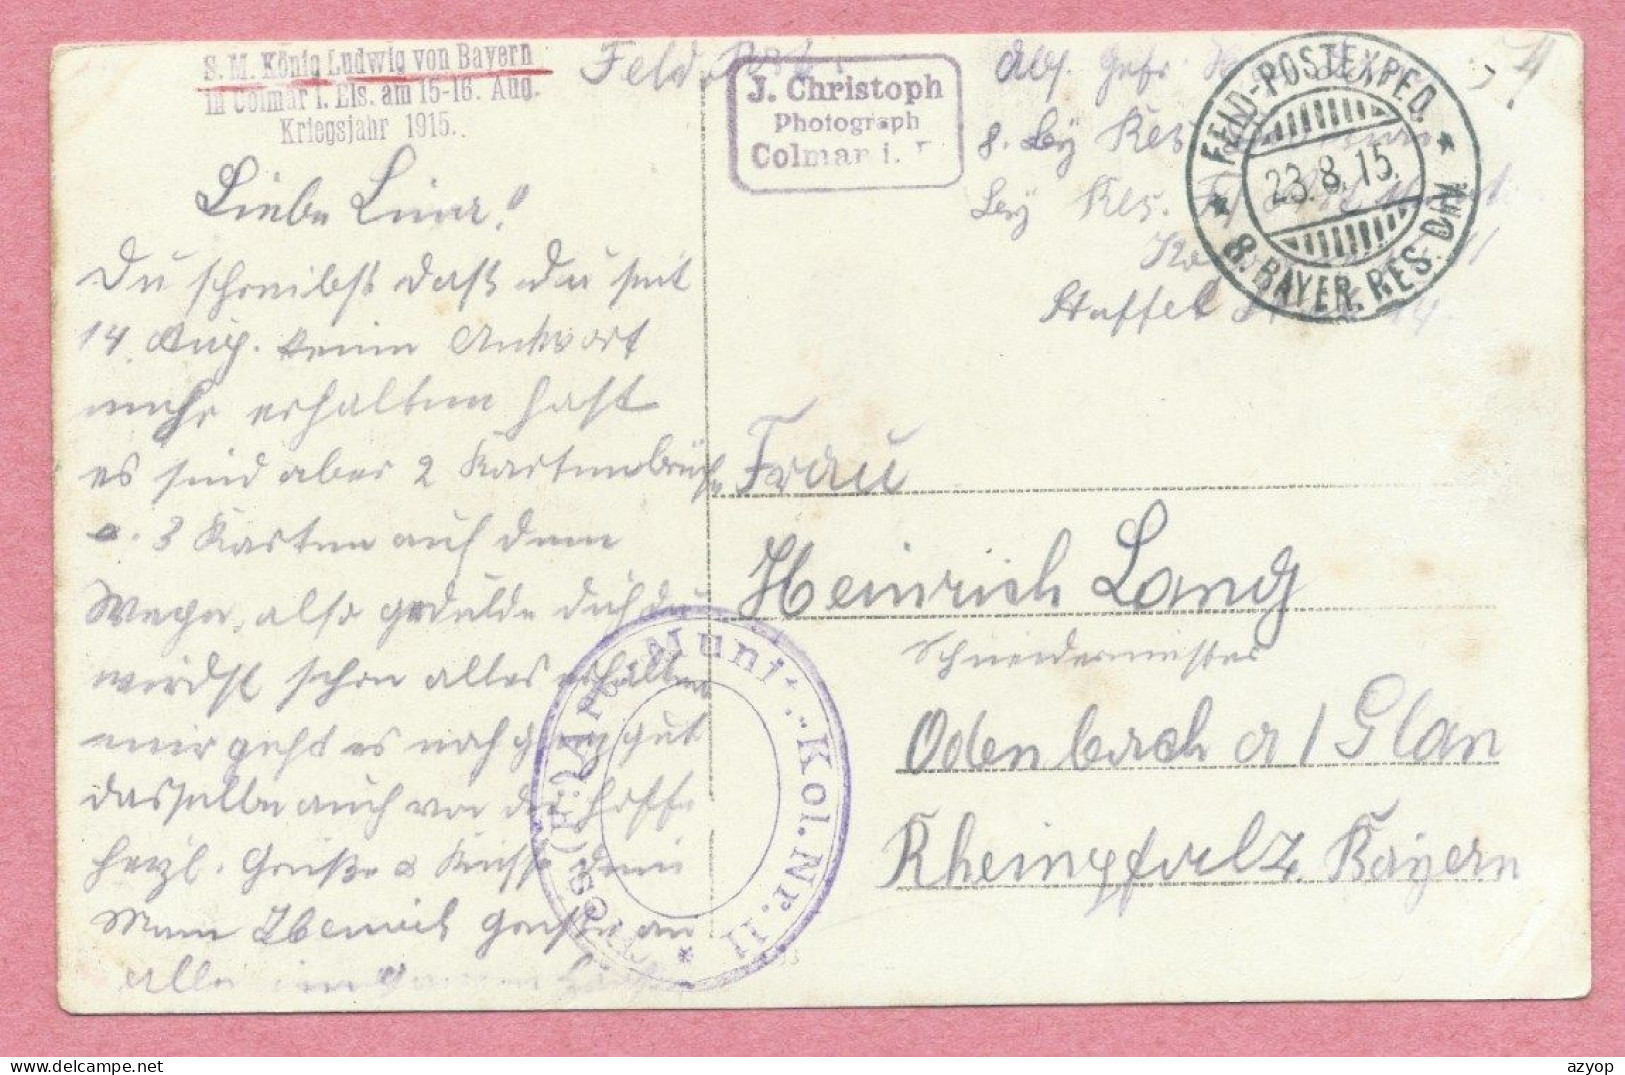 S. M. König Ludwig von Bayern
in Colmar i. Els. am 15-16. Aug.
Kriegsjahr 1915.
Feldpost
J. Christoph
Photograph
Colmar i.
Abs. Gefr.
8. Bÿ Res
Bÿ Res.
Staffel
FELD-POSTEXPED.
23.8.15.
8. BAYER. RES. DIV.
Liebe Lina!
Du schreibst daß du seit
14. Aug. keine Antwort
mehr erhalten hast
es sind aber 2 Kartenbriefe
u. 3 Karten auf dem
Wege, also gedulde dich du
wirdst schon alles erhalten
mir geht es noch ganz gut
dasselbe auch von dir hoffe
herzl. Grüße & Küsse dein
Mann Heinrich Grüße an
alle im ganzen
Frau
Heinrich Lang
Schneidermeister
Odenbach a/Glan
Rheinpfalz. Bayern
Munit.-Kol. Nr. 11
azyop